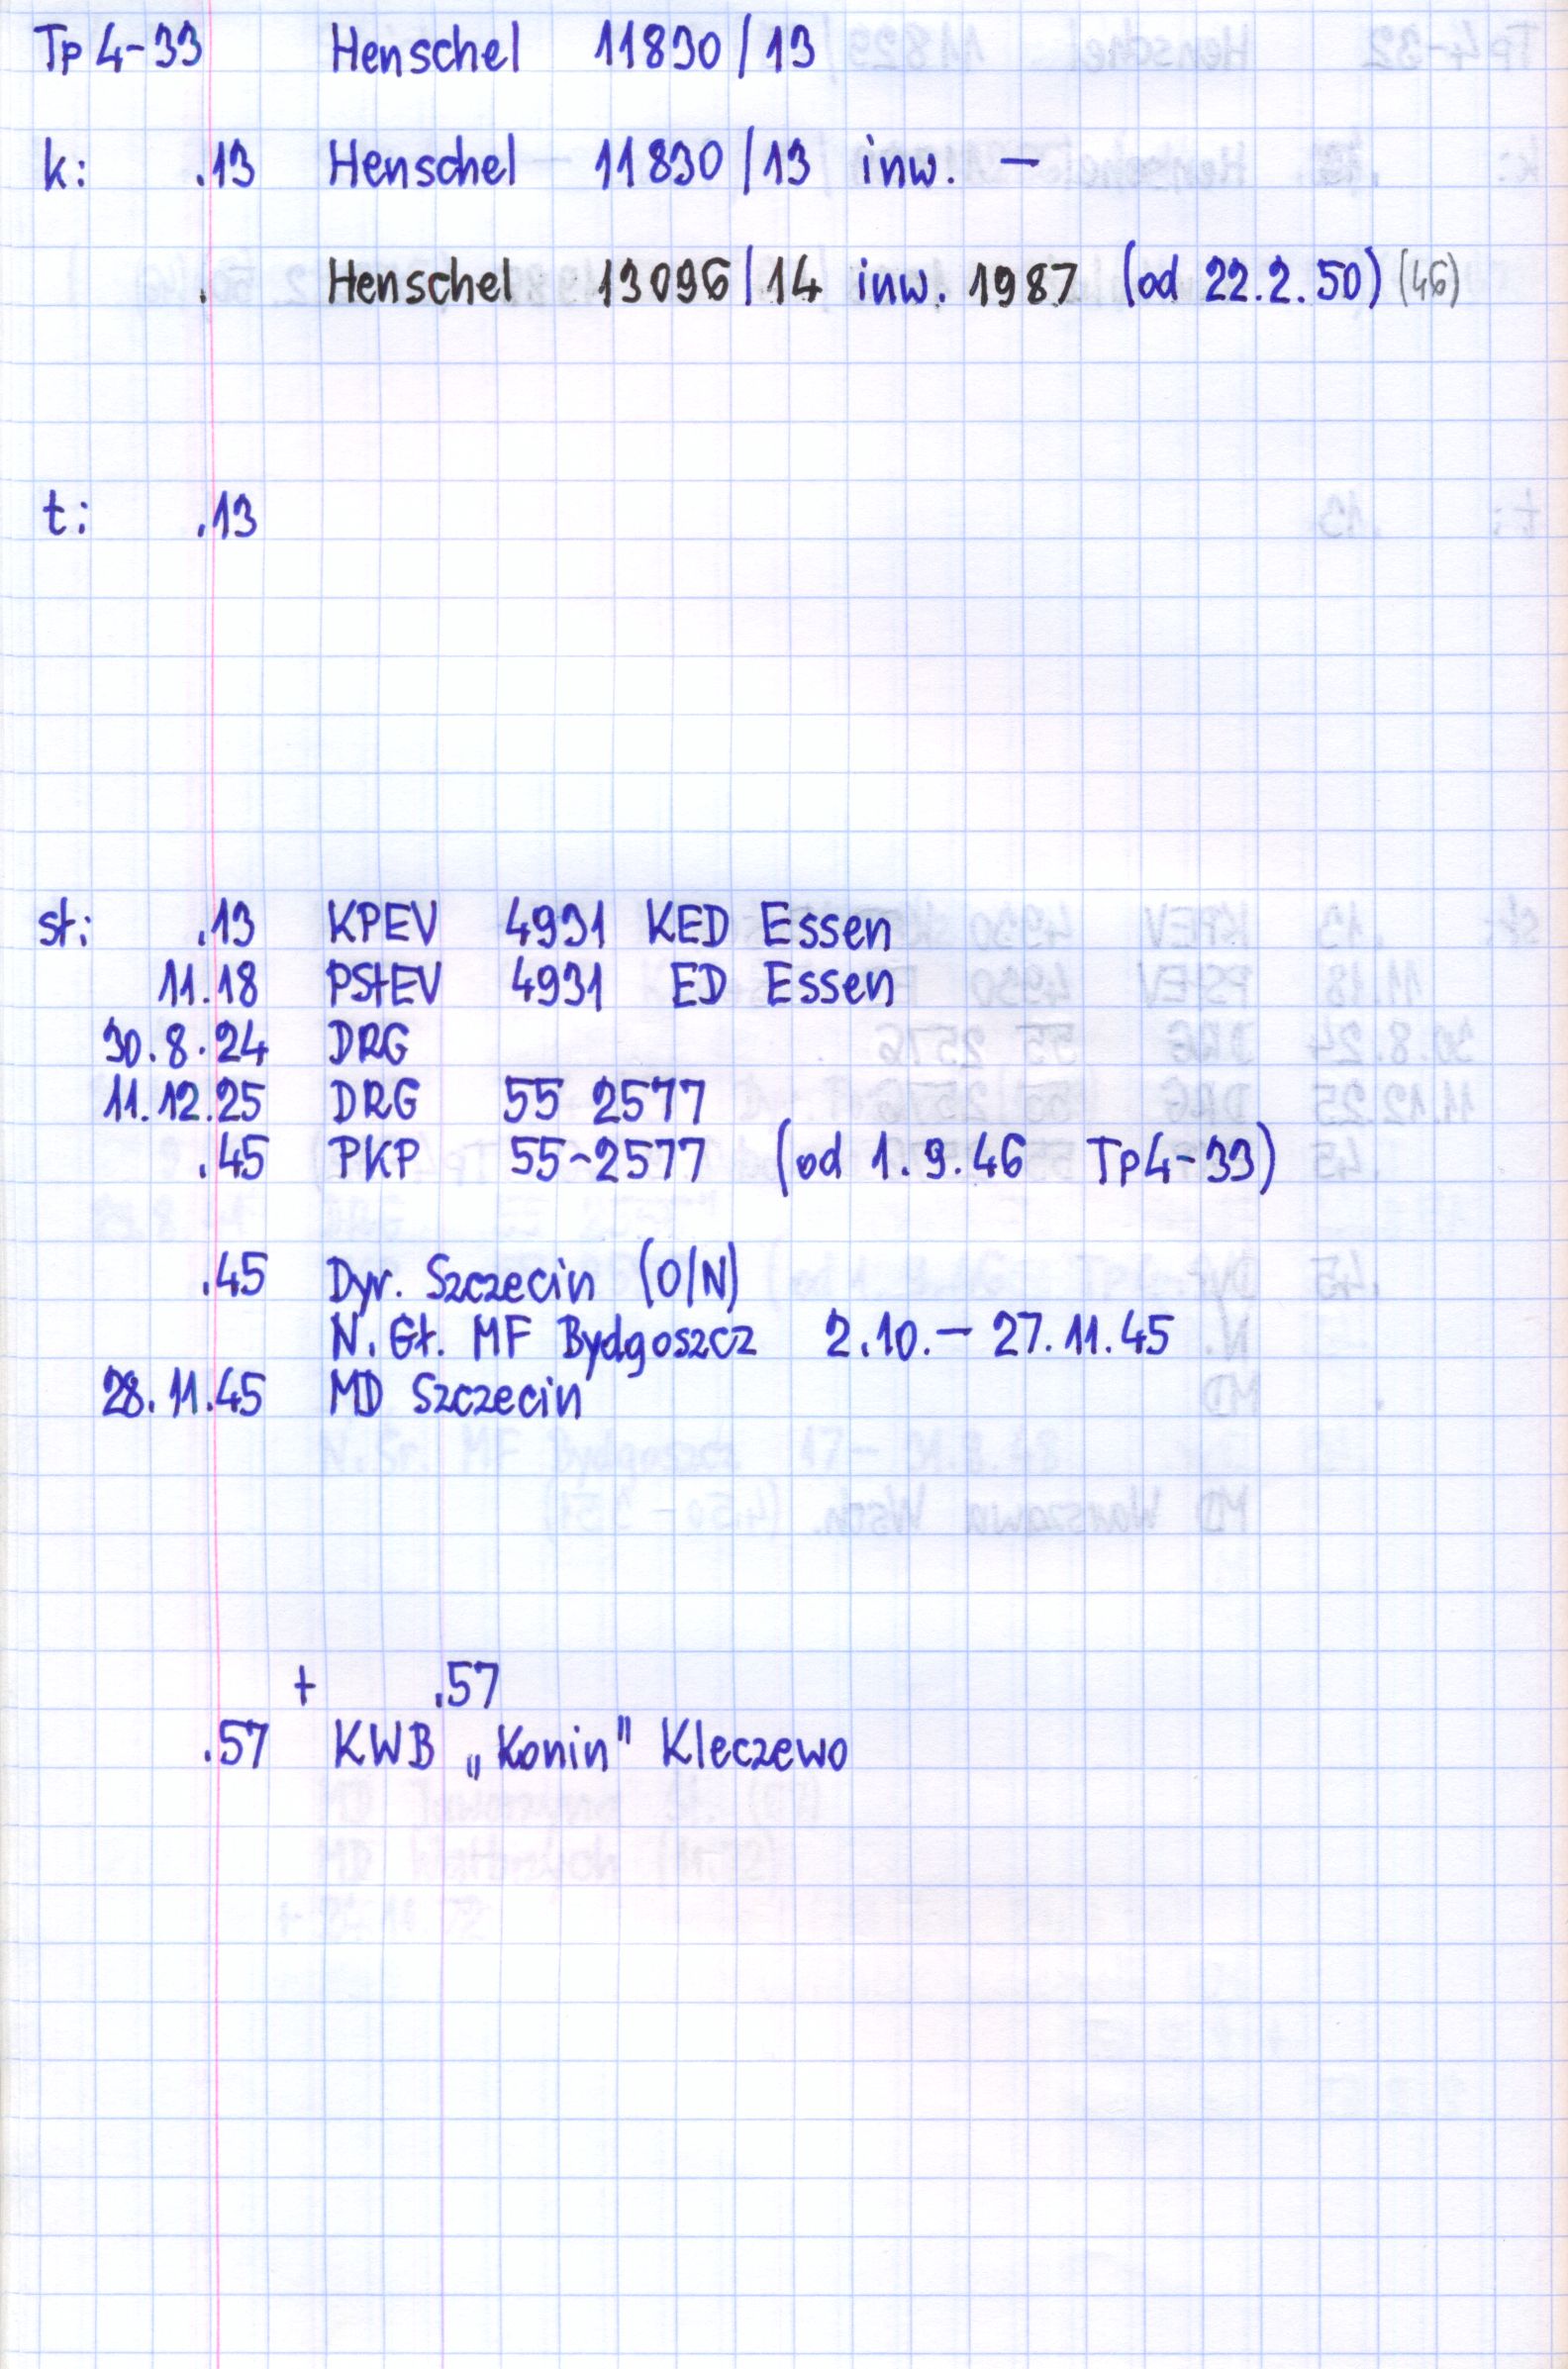 Tp 4-33 Henschel 11830/13
k: .13 Henschel 11830/13 inw. —
. Henschel 13096/14 inw. 1987 (od 22.2.50) (46)
t: .13
st: .13 KPEV 4931 KED Essen
11.18 PStEV 4931 ED Essen
30.8.24 DRG
11.12.25 DRG 55 2577
.45 PKP 55~2577 (od 1.9.46 Tp4-33)
.45 Dyr. Szczecin (O/N)
N. Gł. MF Bydgoszcz 2.10.— 27.11.45
28.11.45 MD Szczecin
+ .57
.57 KWB „Konin" Kleczewo